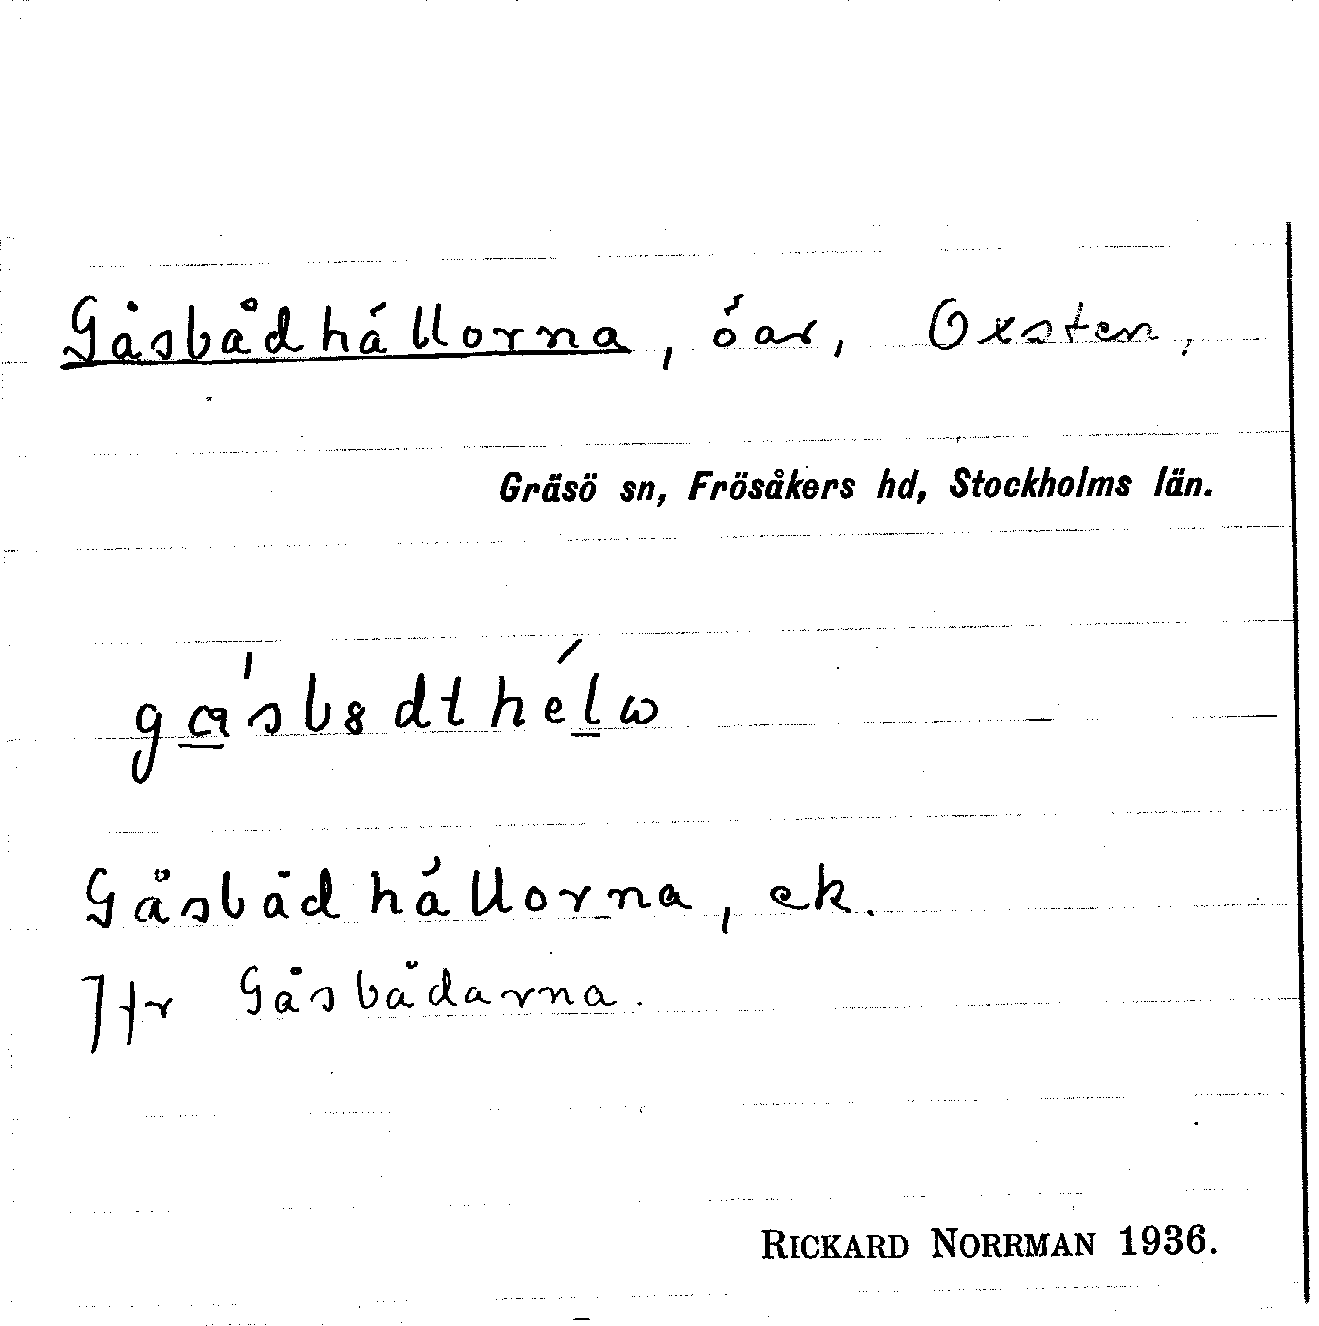 Gåsbådhällorna, öar, Oxsten,
Gräsö sn, Frösåkers hd, Stockholms län.
Gåsbådhällorna, ek.
Jfr Gåsbådarna.
RICKARD NORRMAN 1936.